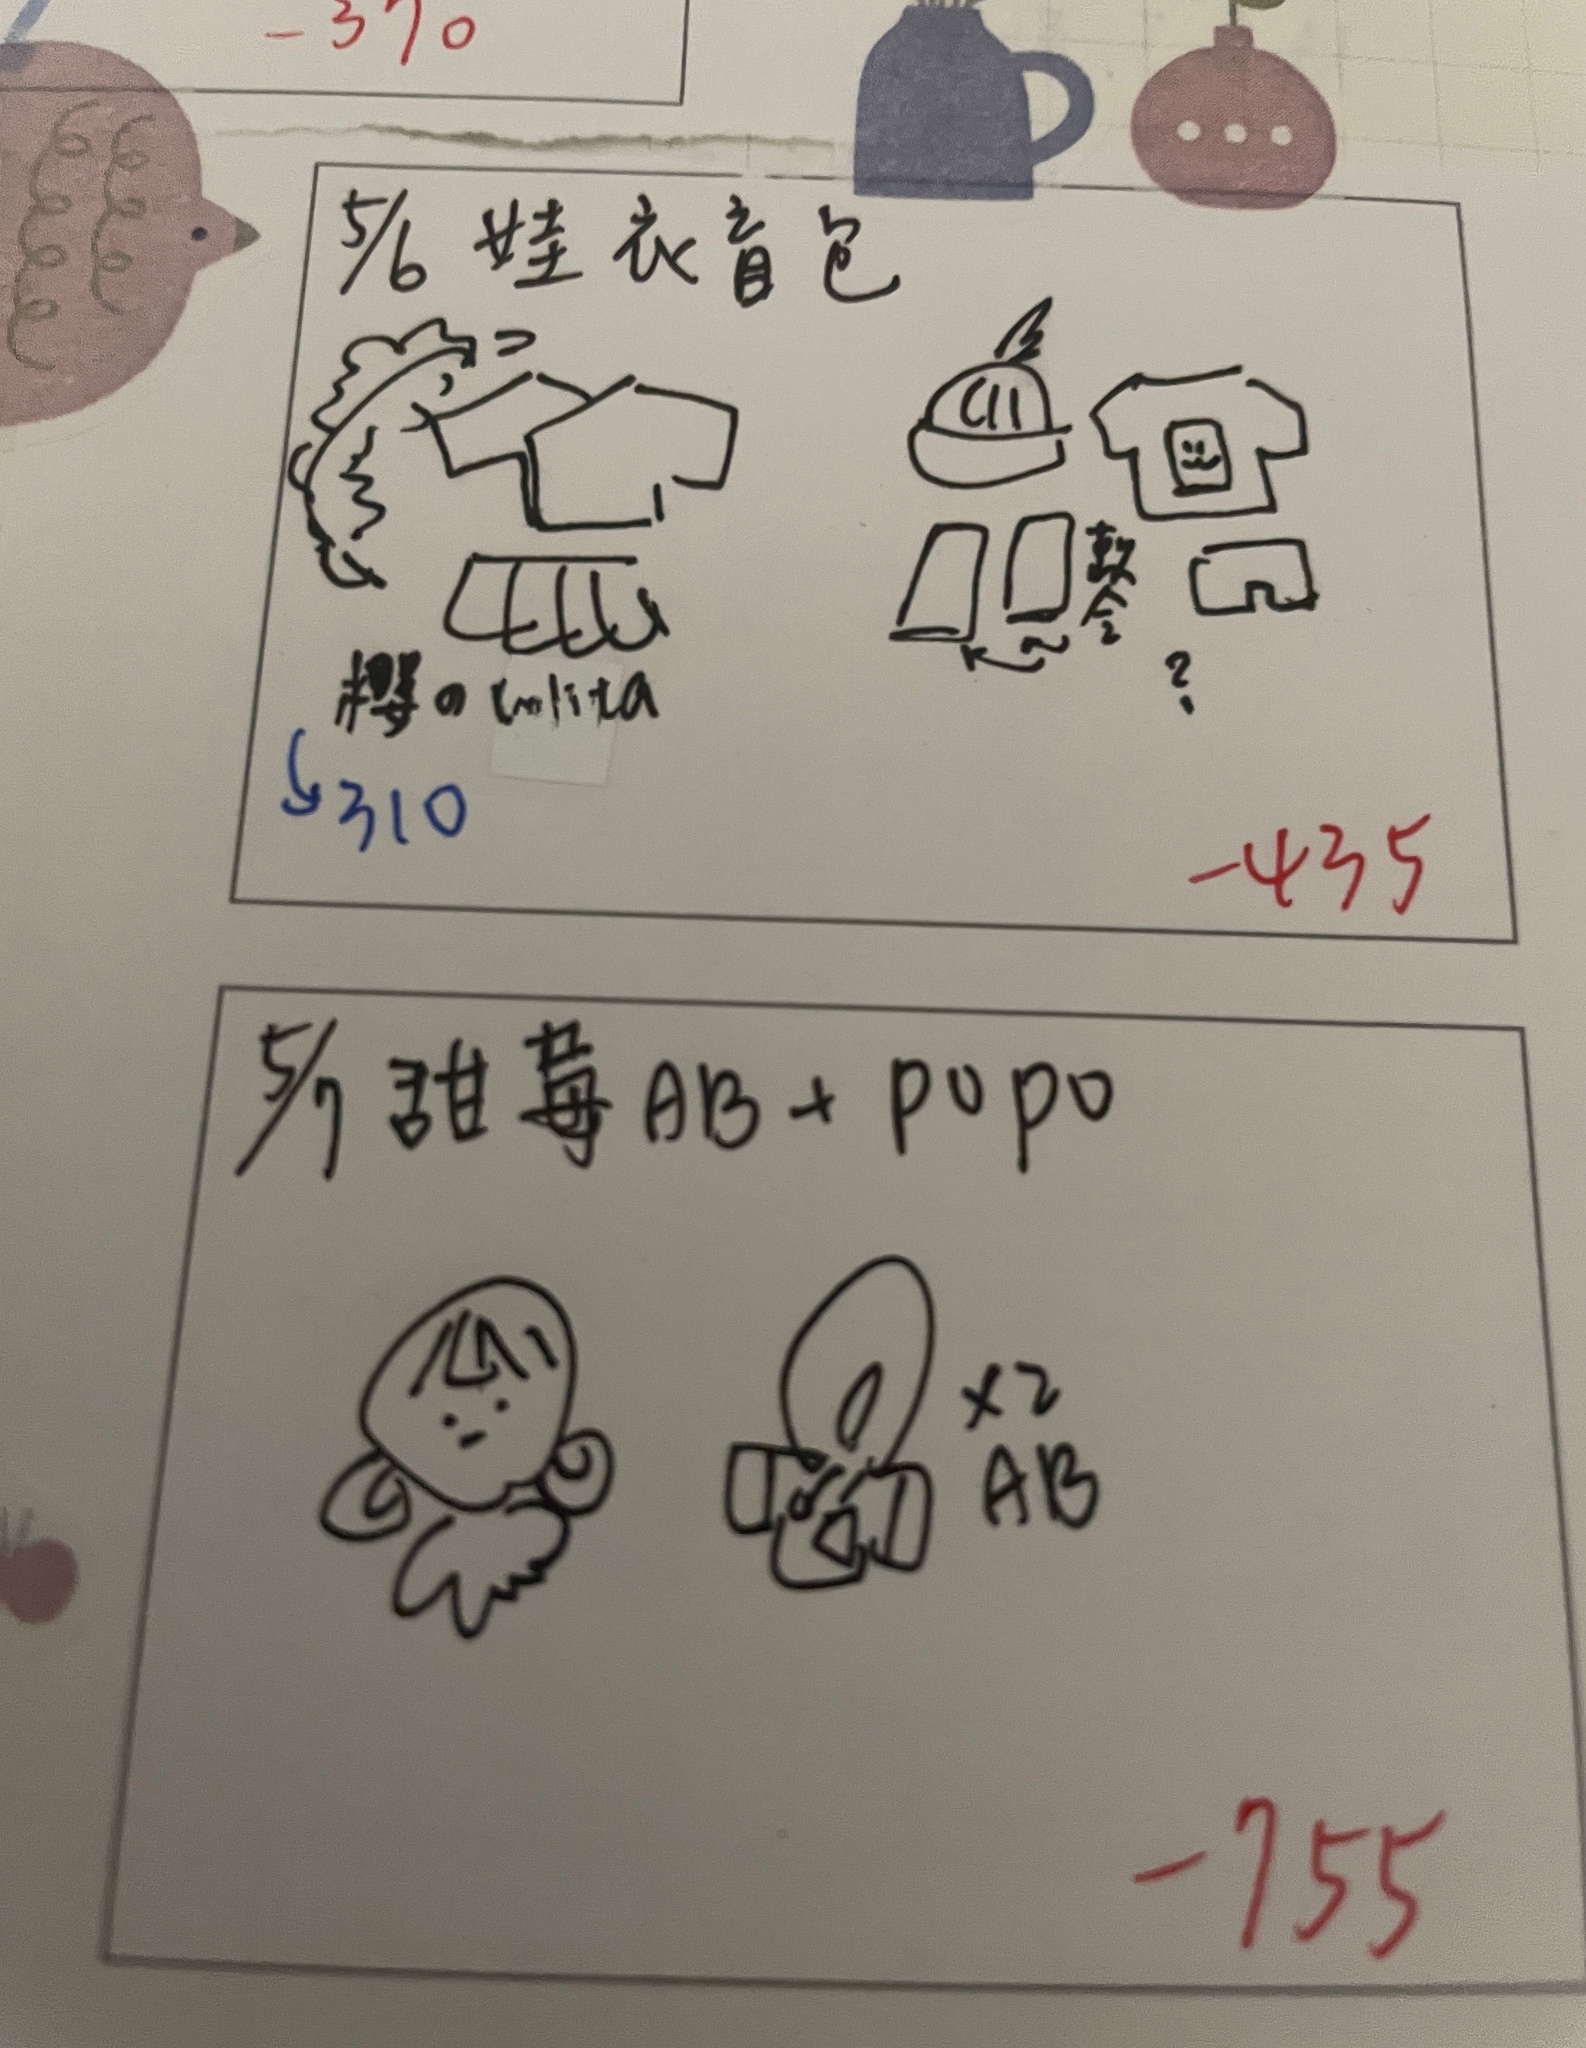 -370
5/6 娃衣盲包
軟
?
櫻の lolita
310
-435
5/7 甜莓 AB + popo
x2
AB
-755